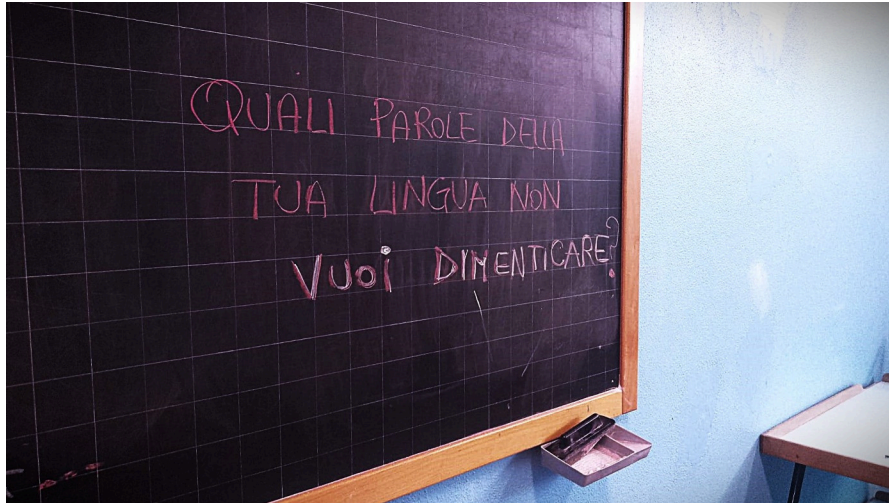 QUALI PAROLE DELLA
TUA LINGUA NON
VUOi DIMENTICARE?